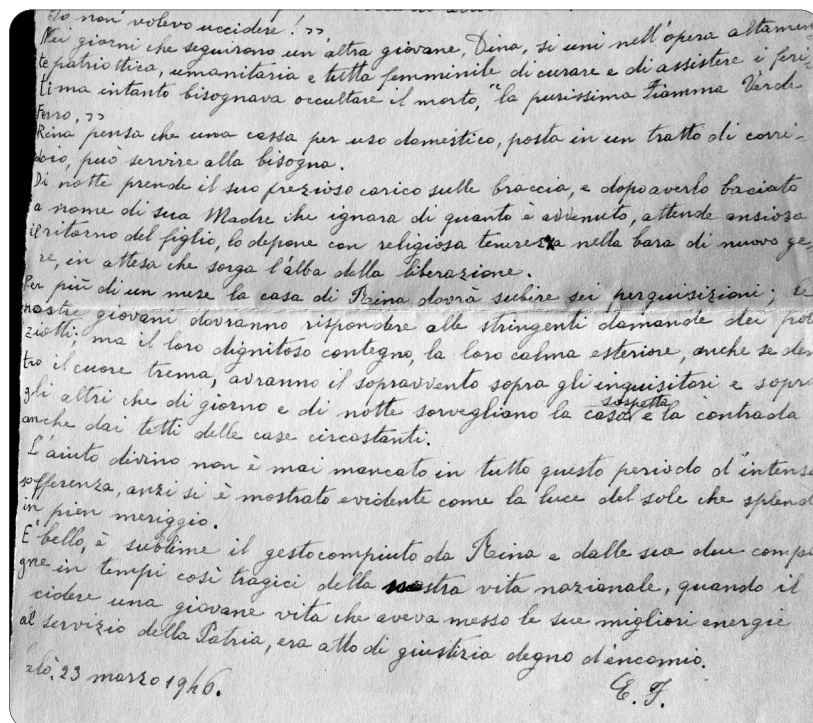 Io non volevo uccidere! ››
Nei giorni che seguirono un'altra giovane, Dina, si unì nell'opera altamen-
te patriottica, umanitaria e tutta femminile di curare e di assistere i feri-
ti, ma intanto bisognava occultare il morto, "la purissima Fiamma Verde
Ferro. ››
Reina pensa che una cassa per uso domestico, posta in un tratto di corri-
doio, può servire alla bisogna.
Di notte prende il suo prezioso carico sulle braccia, e dopo averlo baciato
a nome di sua Madre che ignara di quanto è avvenuto, attende ansiosa
il ritorno del figlio, lo depone con religiosa tenerezza nella bara di nuovo ge-
re, in attesa che sorga l'alba della liberazione.
Per più di un mese la casa di Reina dovrà subire sei perquisizioni; le
nostre giovani dovranno rispondere alle stringenti domande dei pol
ziotti; ma il loro dignitoso contegno, la loro calma esteriore, anche se den
tro il cuore trema, avranno il sopravvento sopra gli inquisitori e sopra
gli altri che di giorno e di notte sorvegliano la casa sospetta e la contrada
anche dai tetti delle case circostanti.
L'aiuto divino non è mai mancato in tutto questo periodo d'intensa
sofferenza, anzi si è mostrato evidente come la luce del sole che splend
in pien meriggio.
E' bello, è sublime il gesto compiuto da Reina e dalle sue due compa
gne in tempi così tragici della nostra vita nazionale, quando il
cidere una giovane vita che aveva messo le sue migliori energie
al servizio della Patria, era atto di giustizia degno d'encomio.
alò, 23 marzo 1946.
E. F.